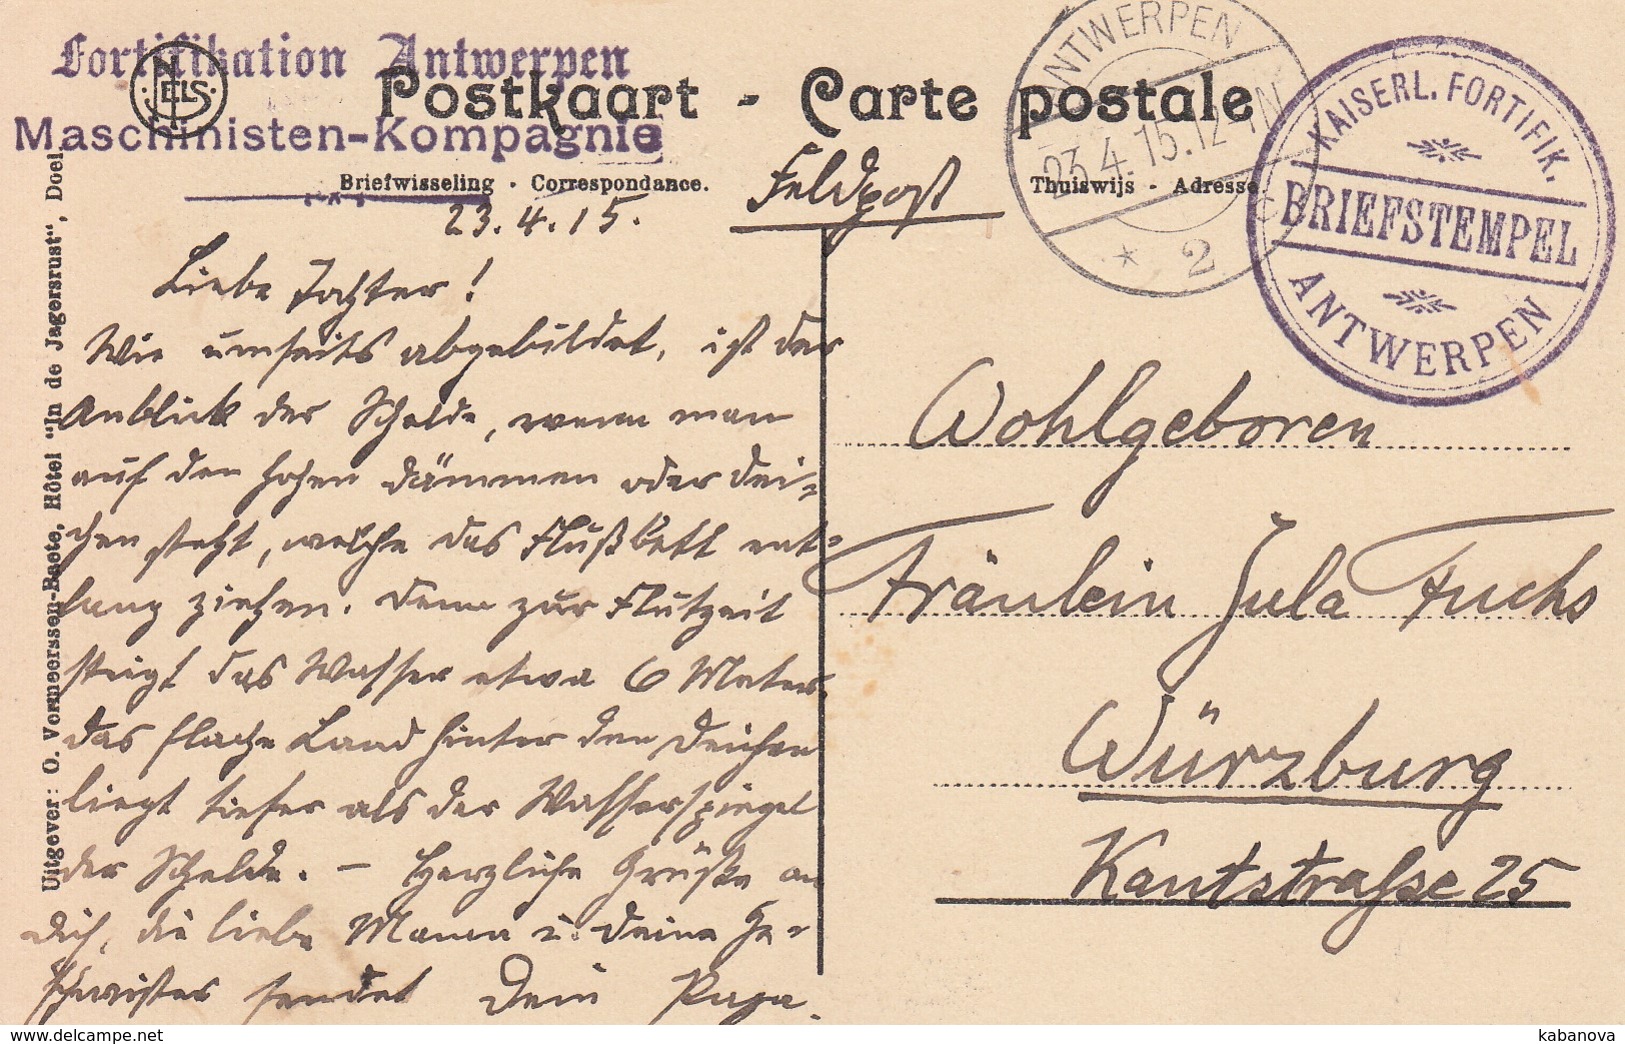 Fortifikation Antwerpen
Maschinisten-Kompagnie
NELS
Postkaart - Carte postale
Briefwisseling - Correspondance.
Thuiswijs - Adresse.
ANTWERPEN
23.4.15.12-1N
* 2
KAISERL. FORTIFIK.
BRIEFSTEMPEL
ANTWERPEN
Uitgever: O. Vormeerssen-Baete, Hôtel "In de Jagersrust", Doel.
Feldpost
23.4.15.
Liebe Tochter!
Wie umseits abgebildet, ist der
Anblick der Schelde, wenn man
auf den hohen Dämmen oder Dei-
chen steht, welche das Flußbett ent-
lang ziehen. Denn zur Flutzeit
steigt das Wasser etwa 6 Meter.
Das flache Land hinter den Deichen
liegt tiefer als der Wasserspiegel
der Schelde. — Herzliche Grüße an
Dich, die liebe Mama u. Deine Ge-
schwister sendet Dein Papa.
Wohlgeboren
Fräulein Jula Fuchs
Würzburg
Kantstrasse 25
https://www.delcampe.net
kabanova